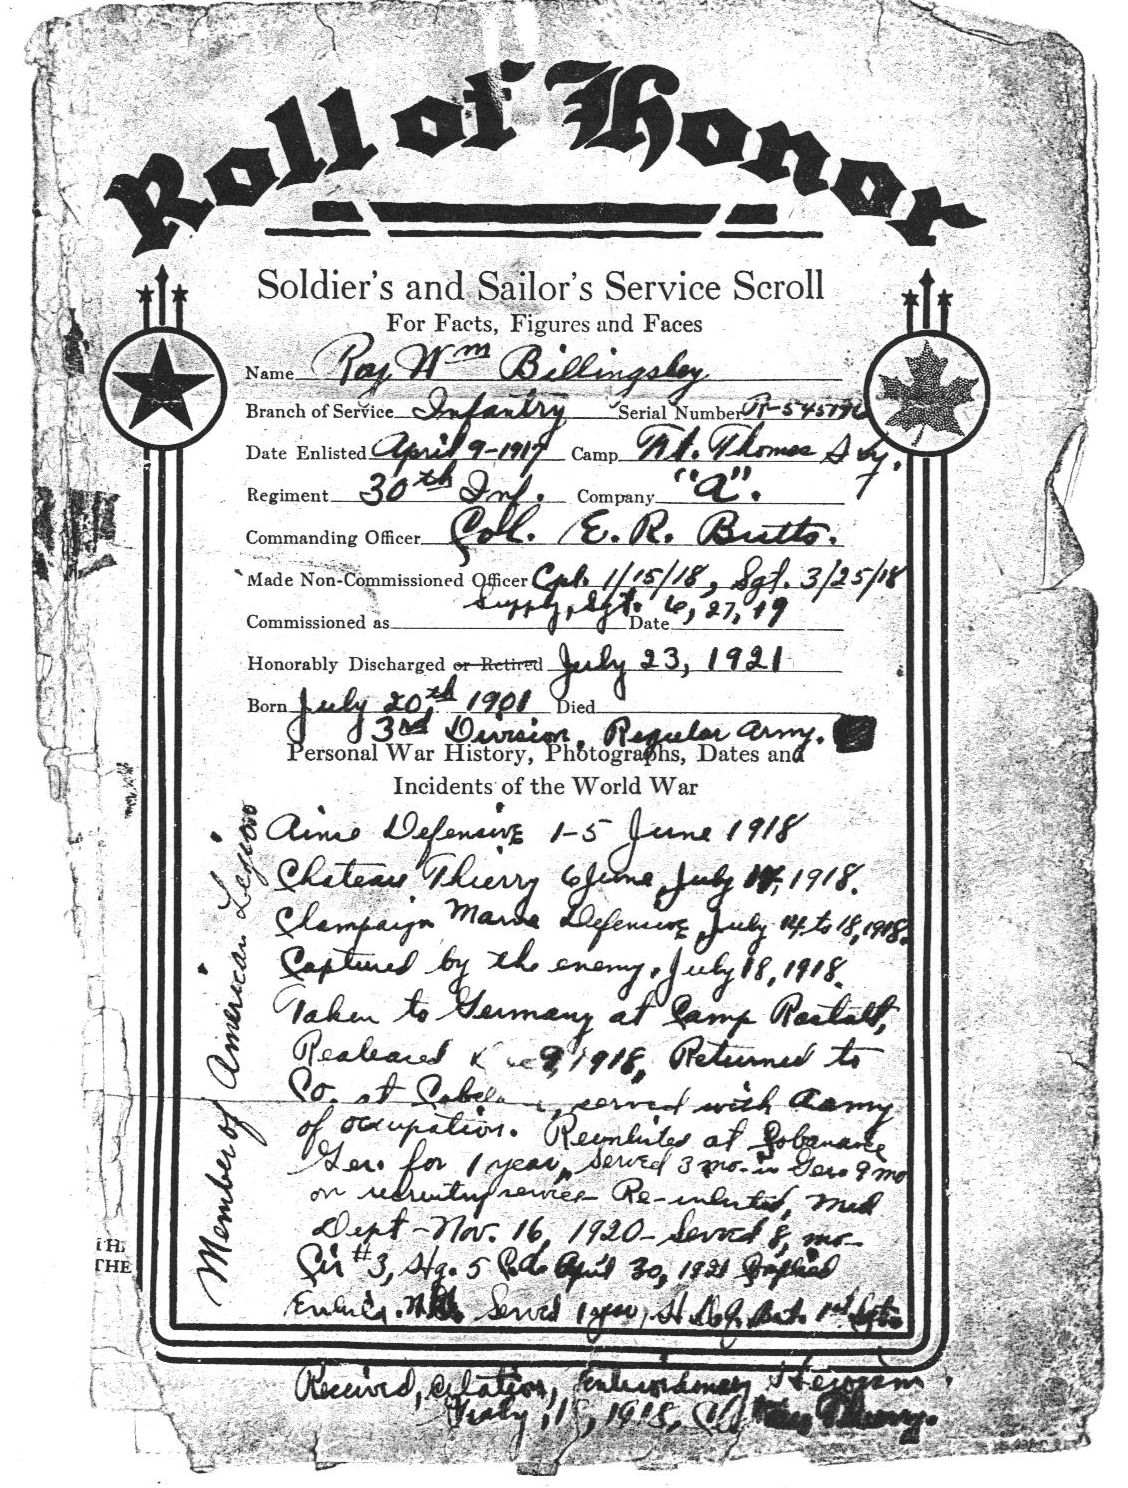 Roll of Honor
Soldier's and Sailor's Service Scroll
For Facts, Figures and Faces
Name Roy Wm Billingsley
Branch of Service Infantry Serial Number
Date Enlisted April 9-1917 Camp Ft. Thomas Ky.
Regiment 30th Inf. Company "A".
Commanding Officer Col. E. R. Butts.
Made Non-Commissioned Officer Cpl. 1/15/18, Sgt. 3/25/18
Supply, Sgt. 6, 27, 19
Commissioned as Date
Honorably Discharged or Retired July 23, 1921
Born July 20th 1901 Died
3rd Division, Regular Army.
Personal War History, Photographs, Dates and
Incidents of the World War
Member of American Legion
Aisne Defensive 1-5 June 1918
Chateau Thierry 6 June, July 14, 1918.
Champaign Marne Defensive, July 14 to 18, 1918.
Captured by the enemy, July 18, 1918.
Taken to Germany at Camp Rastatt,
Realeased 9, 1918, Returned to
Co. at served with Aamy
of occupation. at
Ger. for 1 year, served 3 mo. in Ger. 9 mo
on recruiting service Re-enlisted, Med
Dept - Nov. 16, 1920 - Served 8, mo-
#3, April 30, 1921
Served 1 year,
Received, citation, Extraordinary Heroism.
July, 18, 1918, Thierry.
iH
THE